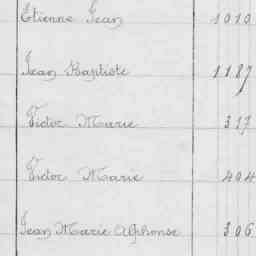 Etienne Jean 1010
Jean Baptiste 1187
Victor Marie 317
Victor Marie 404
Jean Marie Alphonse 306